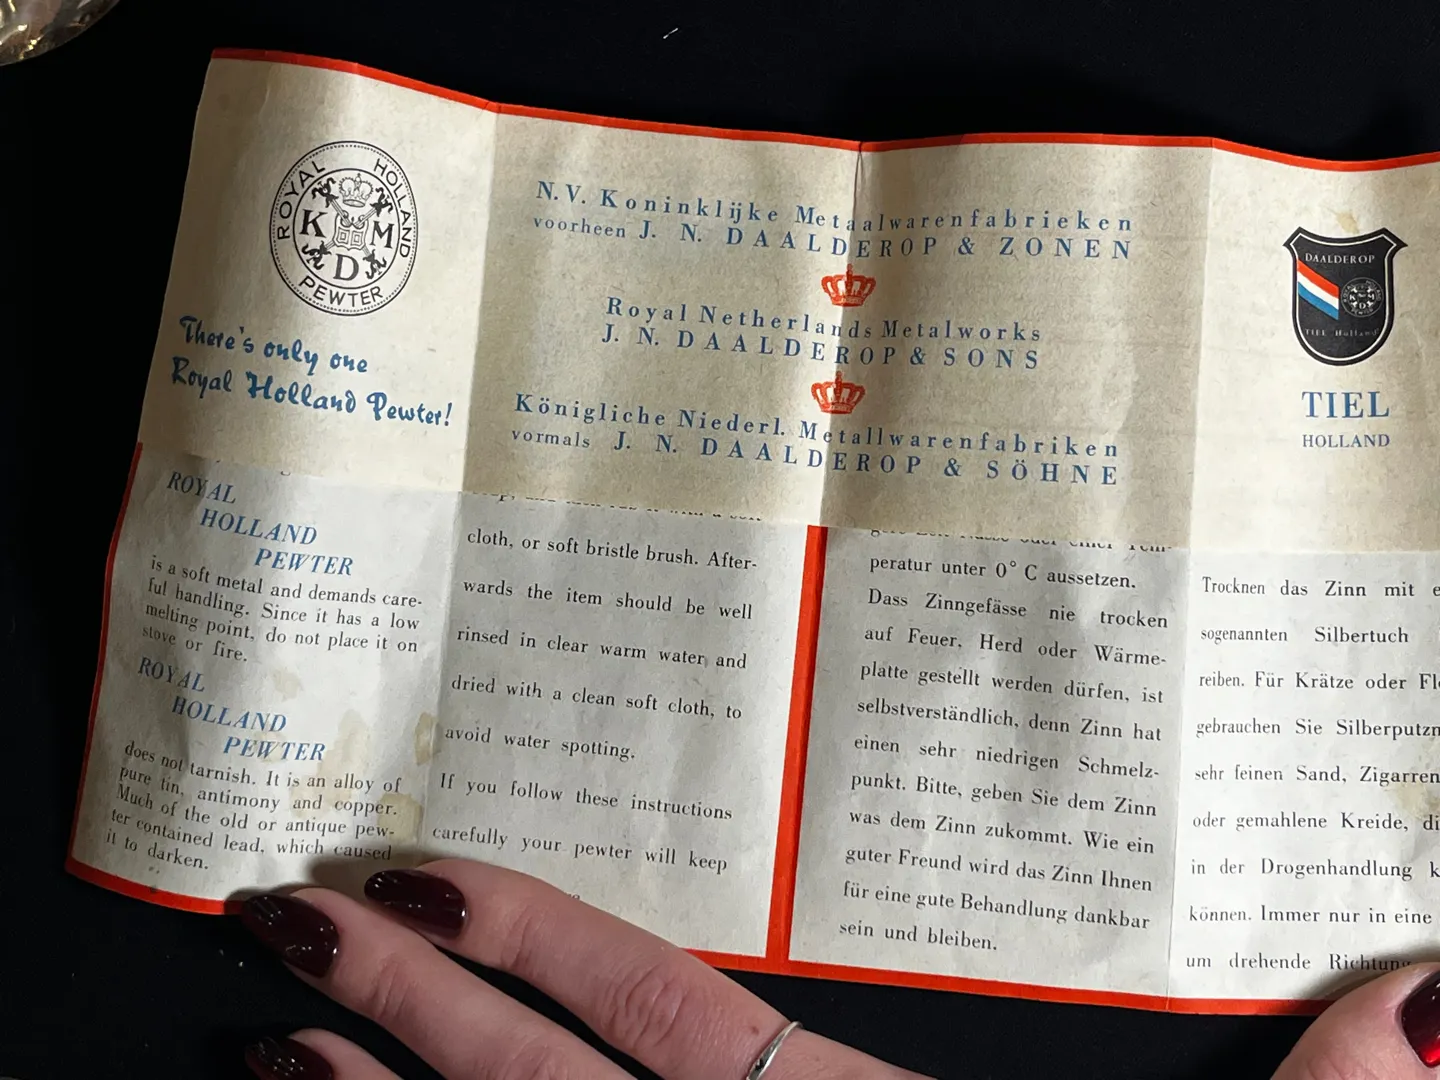 ROYAL HOLLAND
K M
D
PEWTER
There's only one
Royal Holland Pewter!
N.V. Koninklijke Metaalwarenfabrieken
voorheen J. N. DAALDEROP & ZONEN
Royal Netherlands Metalworks
J. N. DAALDEROP & SONS
Königliche Niederl. Metallwarenfabriken
vormals J. N. DAALDEROP & SÖHNE
DAALDEROP
K M
D
TIEL Holland
TIEL
HOLLAND
ROYAL
HOLLAND
PEWTER
is a soft metal and demands care-
ful handling. Since it has a low
melting point, do not place it on
stove or fire.
ROYAL
HOLLAND
PEWTER
does not tarnish. It is an alloy of
pure tin, antimony and copper.
Much of the old or antique pew-
ter contained lead, which caused
it to darken.
cloth, or soft bristle brush. After-
wards the item should be well
rinsed in clear warm water and
dried with a clean soft cloth, to
avoid water spotting.
If you follow these instructions
carefully your pewter will keep
peratur unter 0° C aussetzen.
Dass Zinngefässe nie trocken
auf Feuer, Herd oder Wärme-
platte gestellt werden dürfen, ist
selbstverständlich, denn Zinn hat
einen sehr niedrigen Schmelz-
punkt. Bitte, geben Sie dem Zinn
was dem Zinn zukommt. Wie ein
guter Freund wird das Zinn Ihnen
für eine gute Behandlung dankbar
sein und bleiben.
Trocknen das Zinn mit
sogenannten Silbertuch
reiben. Für Krätze oder
gebrauchen Sie
sehr feinen Sand,
oder gemahlene Kreide,
in der Drogenhandlung
können. Immer nur in eine
um drehende Richtung